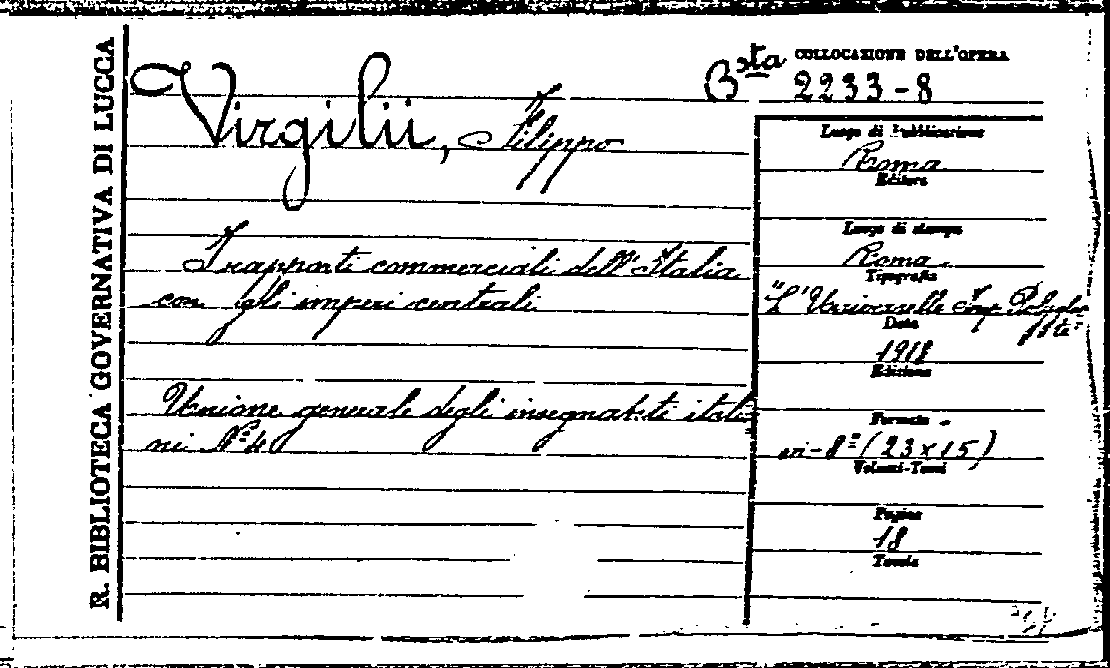 R. BIBLIOTECA GOVERNATIVA DI LUCCA
Virgilii, Filippo
I rapporti commerciali dell'Italia
con gli imperi centrali
Unione generale degli insegnanti italia
ni Nº 4
COLLOCAZIONE DELL'OPERA
Bsta 2233-8
Luogo di Pubblicazione
Roma
Editore
Luogo di stampa
Roma.
Tipografia
"L'Universelle Imp. Poliglo
Data
1918
Edizione
Formato
in-8º (23x15)
Volumi-Tomi
Pagine
18
Tavole